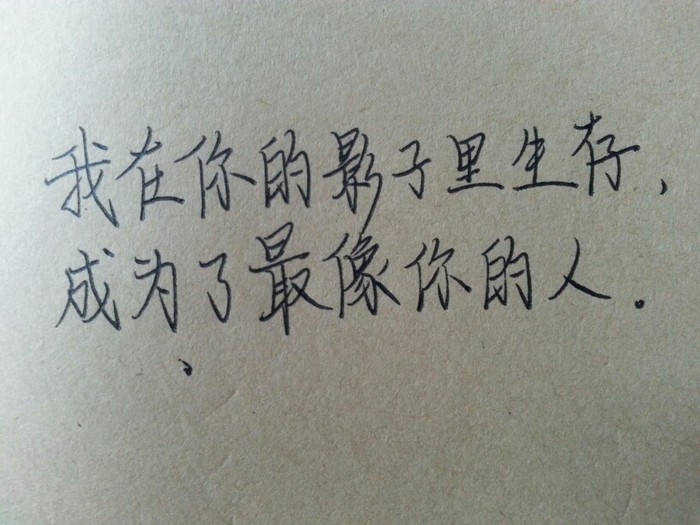 我在你的影子里生存，
成为了最像你的人.